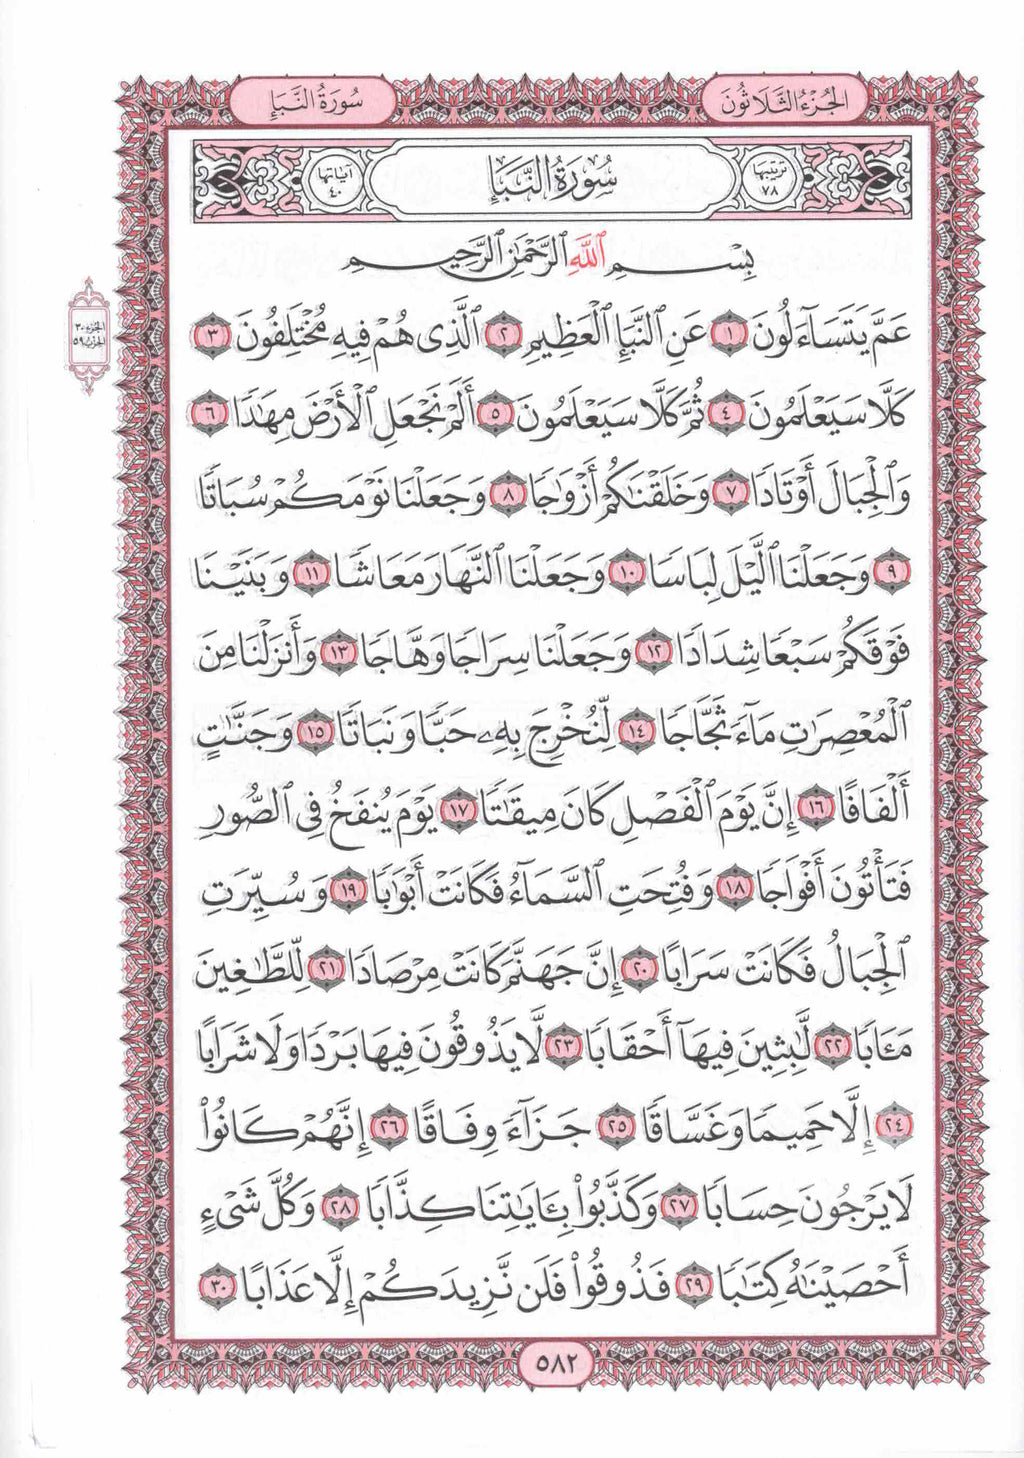 الجُزْءُ الثَّلَاثُونَ
سُورَةُ النَّبَإِ
ترتيبها ٧٨
سُورَةُ النَّبَإِ
آياتها ٤٠
بِسْمِ ٱللَّهِ ٱلرَّحْمَٰنِ ٱلرَّحِيمِ
الجزء ٣٠
الحزب ٥٩
عَمَّ يَتَسَآءَلُونَ ١ عَنِ ٱلنَّبَإِ ٱلْعَظِيمِ ٢ ٱلَّذِى هُمْ فِيهِ مُخْتَلِفُونَ ٣
كَلَّا سَيَعْلَمُونَ ٤ ثُمَّ كَلَّا سَيَعْلَمُونَ ٥ أَلَمْ نَجْعَلِ ٱلْأَرْضَ مِهَٰدًا ٦
وَٱلْجِبَالَ أَوْتَادًا ٧ وَخَلَقْنَٰكُمْ أَزْوَٰجًا ٨ وَجَعَلْنَا نَوْمَكُمْ سُبَاتًا
٩ وَجَعَلْنَا ٱلَّيْلَ لِبَاسًا ١٠ وَجَعَلْنَا ٱلنَّهَارَ مَعَاشًا ١١ وَبَنَيْنَا
فَوْقَكُمْ سَبْعًا شِدَادًا ١٢ وَجَعَلْنَا سِرَاجًا وَهَّاجًا ١٣ وَأَنزَلْنَا مِنَ
ٱلْمُعْصِرَٰتِ مَآءً ثَجَّاجًا ١٤ لِّنُخْرِجَ بِهِۦ حَبًّا وَنَبَاتًا ١٥ وَجَنَّٰتٍ
أَلْفَافًا ١٦ إِنَّ يَوْمَ ٱلْفَصْلِ كَانَ مِيقَٰتًا ١٧ يَوْمَ يُنفَخُ فِى ٱلصُّورِ
فَتَأْتُونَ أَفْوَاجًا ١٨ وَفُتِحَتِ ٱلسَّمَآءُ فَكَانَتْ أَبْوَٰبًا ١٩ وَسُيِّرَتِ
ٱلْجِبَالُ فَكَانَتْ سَرَابًا ٢٠ إِنَّ جَهَنَّمَ كَانَتْ مِرْصَادًا ٢١ لِّلطَّٰغِينَ
مَـَٔابًا ٢٢ لَّٰبِثِينَ فِيهَآ أَحْقَابًا ٢٣ لَّا يَذُوقُونَ فِيهَا بَرْدًا وَلَا شَرَابًا
٢٤ إِلَّا حَمِيمًا وَغَسَّاقًا ٢٥ جَزَآءً وِفَاقًا ٢٦ إِنَّهُمْ كَانُوا۟
لَا يَرْجُونَ حِسَابًا ٢٧ وَكَذَّبُوا۟ بِـَٔايَٰتِنَا كِذَّابًا ٢٨ وَكُلَّ شَىْءٍ
أَحْصَيْنَٰهُ كِتَٰبًا ٢٩ فَذُوقُوا۟ فَلَن نَّزِيدَكُمْ إِلَّا عَذَابًا ٣٠
٥٨٢